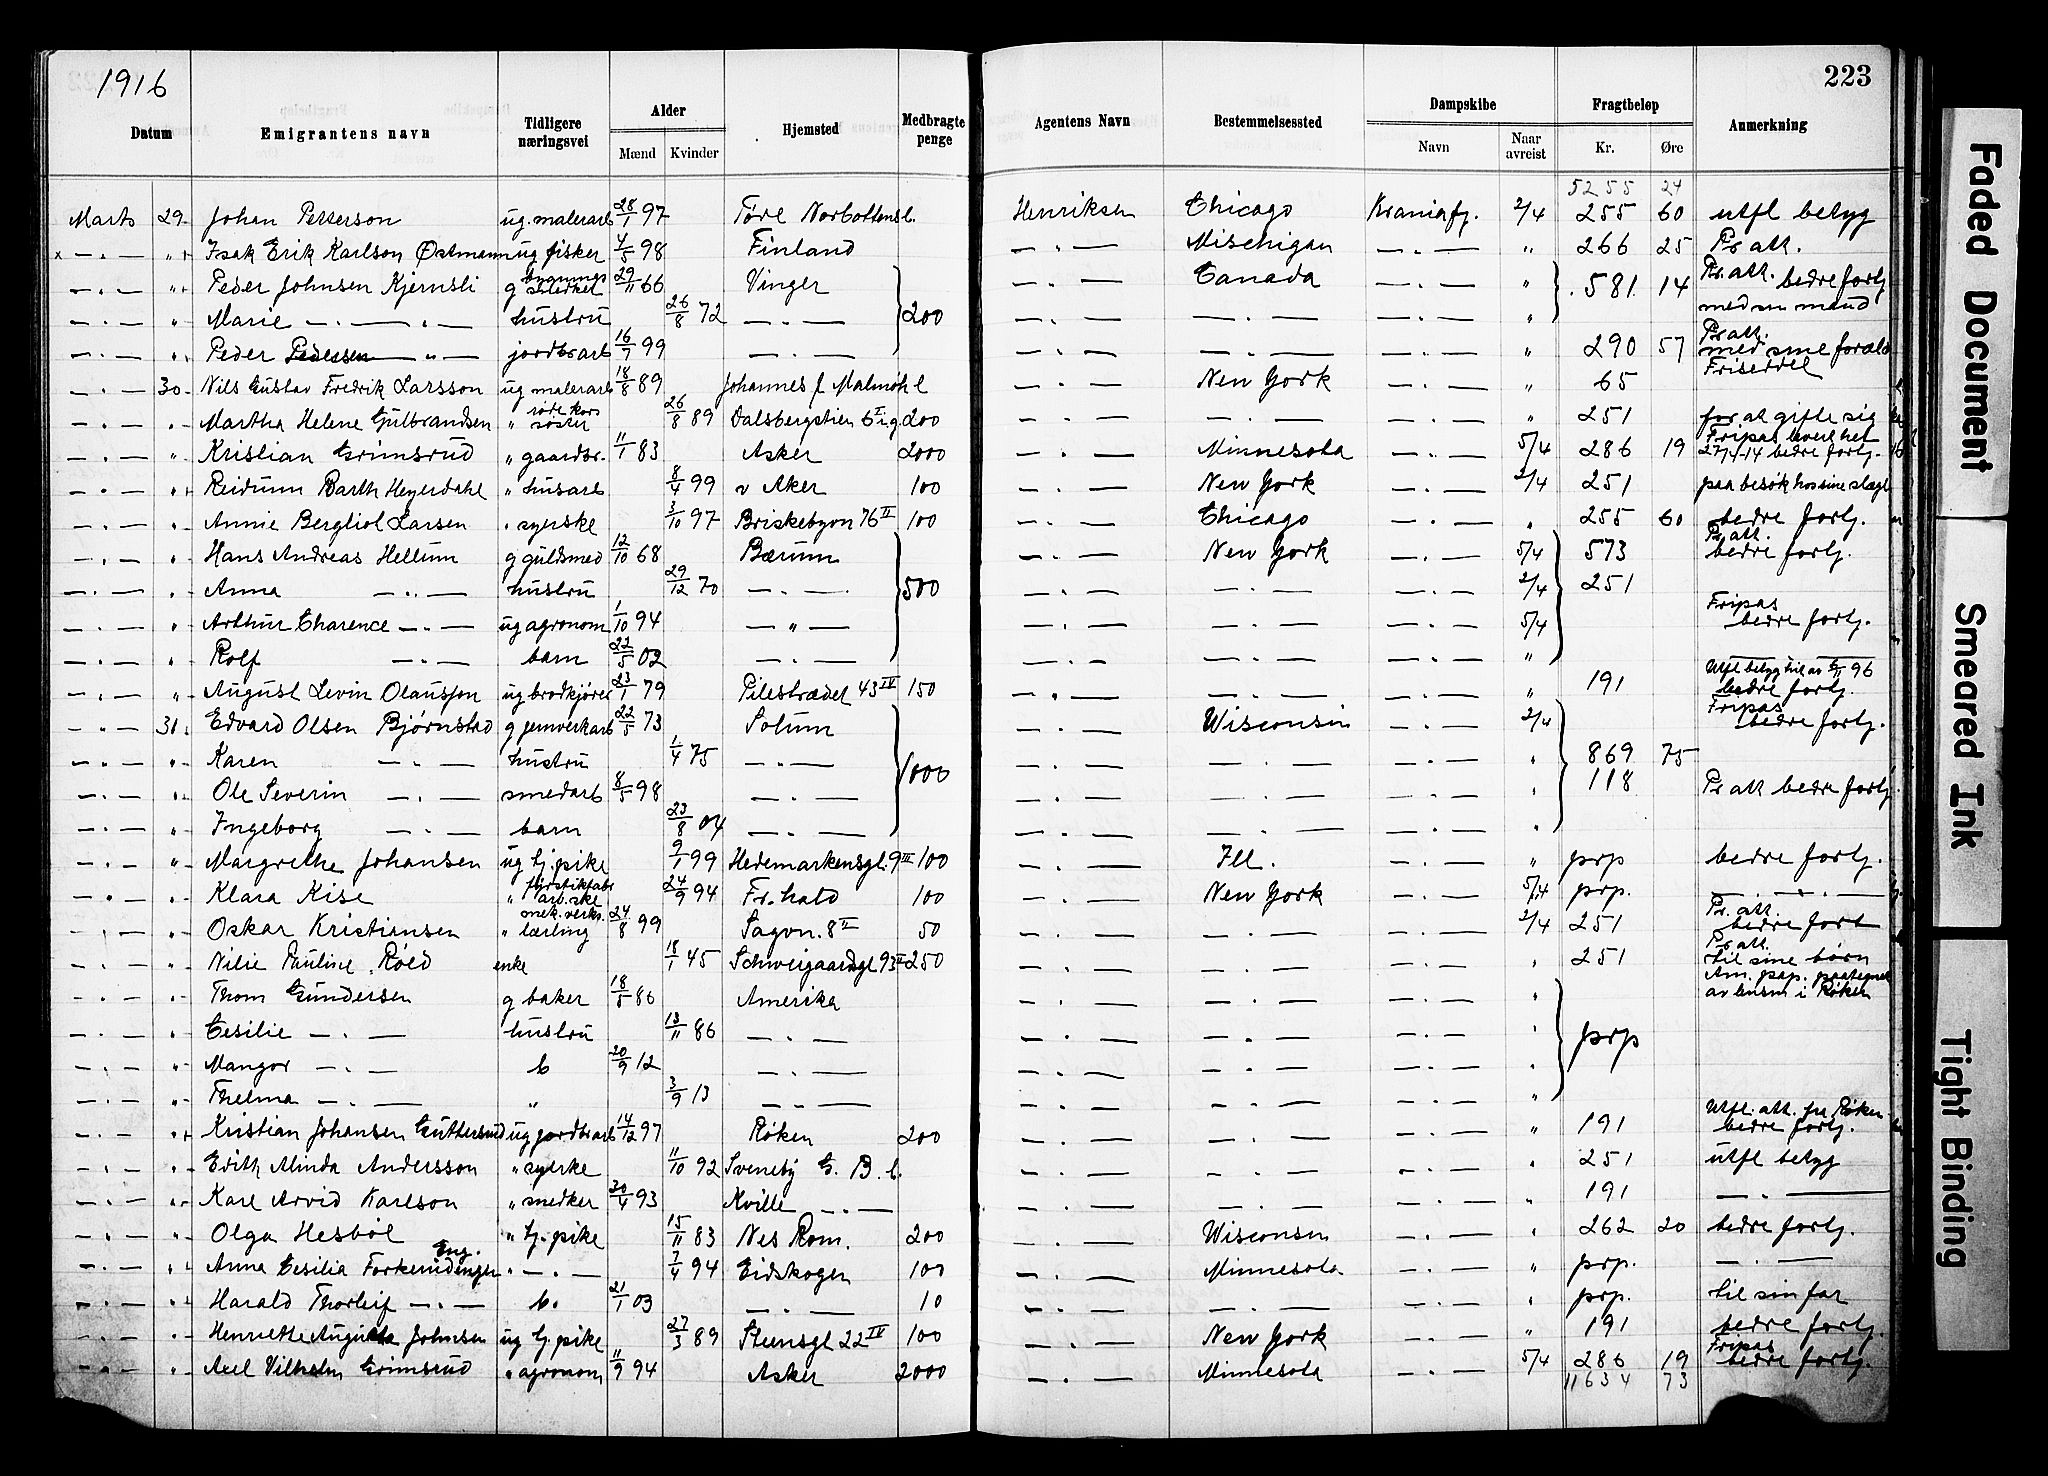 1916
223
Datum | Emigrantens navn | Tidligere næringsvei | Alder | Mænd | Kvinder | Hjemsted | Medbragte penge | Agentens Navn | Bestemmelsessted | Dampskibe | Navn | Naar avreist | Fragtbeløp | Kr. | Øre | Anmerkning
5255 24
Marts 29 Johan Petterson ug. malerarb 28/1 97 Töre Norbottensl. Henriksen Chicago Kraniafj. 2/4 255 60 utfl betyg
x — " Isak Erik Karlson Østmann ug fisker 4/5 98 Finland — Mischigan — " 266 25 Pr att.
— " Peder Johnsen Kjernsli g bygnings snedker 29/11 66 Vinger — Canada — " 581 14 Pr. att. bedre fortj
— " Marie — " — hustru 26/8 72 — 200 — — — " med sin mand
— " Peder Pedersen — " — jordbrarb 16/7 99 — — — — " 290 57 Pr att. med sine foræld
— 30 Nils Gustav Fredrik Larsson ug malerarb 18/8 89 Johannes f Malmöh l — New York — " 65 Friseddel
— " Martha Helene Gulbrandsen " röde kors søster 26/8 89 Dalsbergstien 6 I ig 200 — — — " 251 for at gifte sig
— " Kristian Grimsrud " gaardbr. 11/1 83 Asker 2000 — Minnesota — 5/4 286 19 Fripas levert het 27/4/14 bedre fortj.
— " Reidunn Barth Heyerdahl " husarb 8/4 99 v Aker 100 — New York — 2/4 251 paa besök hos sine slægt
— " Annie Bergliot Larsen " syerske 3/10 97 Briskebyvn 76 II 100 — Chicago — " 255 60 bedre fortj.
— " Hans Andreas Hellum g guldsmed 12/10 68 Bærum — New York — 5/4 573 Pr att. bedre fortj.
— " Anna — hustru 29/12 70 — 500 — — — 2/4 251
— " Arthur Charence — ug agronom 1/10 94 — " — — — — 5/4 Fripas bedre fortj.
— " Rolf — barn 22/5 02 — — — — "
— " August Levin Olausson ug brodkjører 23/1 79 Pilestrædet 43 IV 150 — — — " 191 Utfl betyg til av 96 bedre fortj.
— 31. Edvard Olsen Bjørnstad g jernverkarb 22/5 73 Solum — Wisconsin — 2/4 Fripas bedre fortj.
— " Karen — hustru 1/4 75 — 1000 — — — " 869 75
— " Ole Severin — smedarb 8/5 98 — — — — " 118 Pr att bedre fortj
— " Ingeborg — barn 23/8 04 — — — — "
— " Margrethe Johansen ug tj. pike 9/1 99 Hedemarkensgt. 9 III 100 — Ill. — " prp bedre fortj.
— " Klara Kise " fyrstikfabr arb.ske 24/9 94 Fr.hald 100 — New York — 5/4 prp. —
— " Oskar Kristiansen " mek. verks. lærling 24/8 99 Sagvn. 8 II 50 — — — 2/4 251 Pr. att. bedre fort
— " Nilie Pauline Røed enke 18/1 45 Schweigaardsgt 93 II 250 — — — " 251 Pr att. til sine børn
— " Thom Gundersen g baker 18/5 86 Amerika — — — " Am. pap. paategnet av lensm i Røken
— " Cesilie — hustru 13/11 86 — — — — " prp
— " Mangor — b 20/9 12 — — — — "
— " Thelma — " 3/9 13 — — — — "
— " Kristian Johansen Guttersrud ug jordbrarb 14/12 97 Røken 200 — — — " 191 Utfl. att. fr Røken bedre fortj.
— " Edith Alinda Andersson " syerske 11/10 92 Sveneby G. B. l. — — — " 251 utfl betyg
— " Karl Arvid Karlson " snedker 30/4 93 Kville — — — — " 191 —
— " Olga Hesböl " tj. pike 15/11 83 Nes Rom. 200 — Wisconsin — " 262 20 bedre fortj.
— " Anna Cesilia Forkerud Eng. " — 7/4 94 Eidskogen 100 — Minnesota — " prp. —
— " Harald Thorleif — b. 21/1 03 — 10 — — — " prp. til sin far
— " Henriette Augusta Johnsen ug tj. pike 27/3 89 Steensgt 22 IV 100 — New York — " 191 bedre fortj.
— " Axel Vilhelm Grimsrud " agronom 11/9 94 Asker 2000 — Minnesota — 5/4 286 19 Fripas bedre fortj.
11634 73
Faded Document
Smeared Ink
Tight Binding